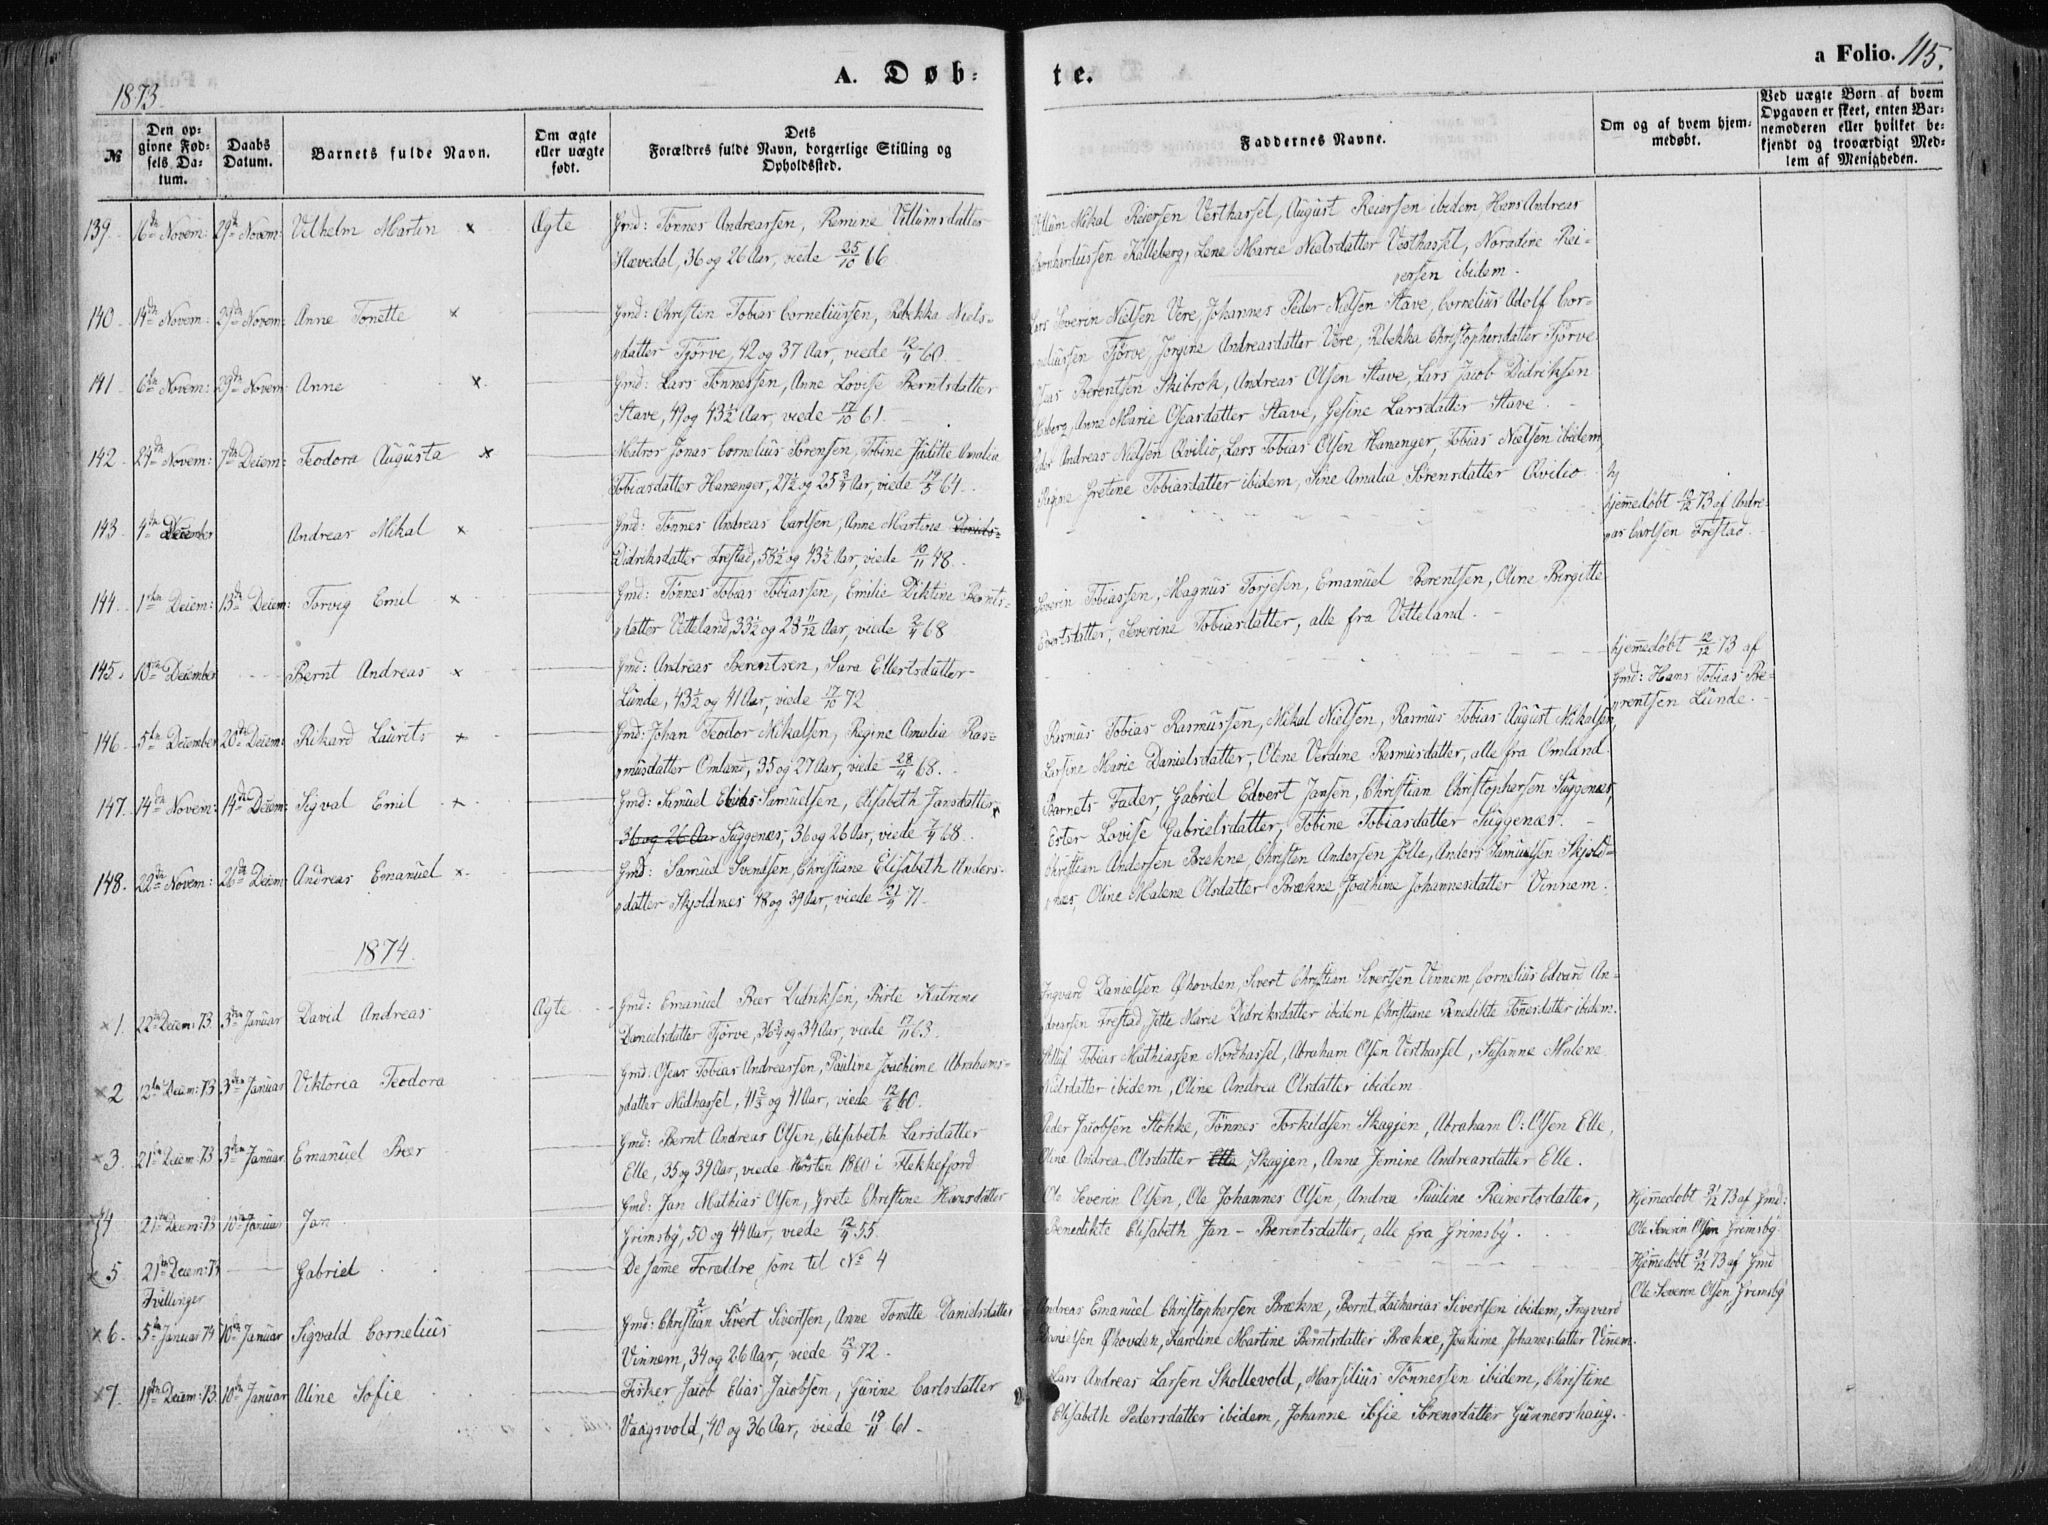 A. Døb-
te.
a Folio. 115.
1873.
№
Den opgivne Fødsels Datum.
Daabs Datum.
Barnets fulde Navn.
Om ægte eller uægte født.
Dets Forældres fulde Navn, borgerlige Stilling og Opholdssted.
Faddernes Navne.
Om og af hvem hjemmedøbt.
Ved uægte Børn af hvem Opgaven er skeet, enten Barnemoderen eller hvilket bekjendt og troværdigt Medlem af Menigheden.
139. 16de Novem: 29de Novem: Vilhelm Martin x Ægte Gmd: Tønnes Andreassen, Remine Villumsdatter
Stavedal, 36 og 26 Aar, viede 25/10 66.
Villum Mikal Reiersen Vesthassel, August Reiersen ibidem, Hans Andreas
Bernhardussen Kalleberg, Lene Marie Nielsdatter Vesthassel, Noradine Rei-
ersen ibidem.
140. 14de Novem: 29de Novem: Anne Tonette x Gmd: Christen Tobias Corneliussen, Rebekka Niels-
datter Tjørve, 42 og 37 Aar, viede 12/11 60.
Lars Severin Nielsen Vere, Johannes Peder Nielsen Stave, Cornelius Adolf Cor-
neliussen Tjørve, Jorgine Andreasdatter Vere, Rebekka Christophersdatter Tjørve
141. 6te Novem: 29de Novem Anne x. Gmd: Lars Tønnessen, Anne Lovise Berntsdatter
Stave, 49 og 43½ Aar, viede 17/10 61.
Oseas Berentsen Skibrok, Andreas Olsen Stave, Lars Jacob Didriksen
Mosberg, Anne Marie Oseasdatter Stave, Gesine Larsdatter Stave.
142. 24de Novem: 7de Decem: Teodora Augusta x Matros Jonas Cornelius Sørensen, Tobine Juditte Amalia
Tobiasdatter Hananger, 27½ og 25¾ Aar, viede 19/5 64.
Peder Andreas Nielsen Qvilio, Lars Tobias Olsen Hananger, Tobias Nielsen ibidem,
Regine Gretine Tobiasdatter ibidem, Sine Amalia Sørensdatter Qvilio.
143. 4de December Andreas Mikal x Gmd: Tønnes Andreas Carlsen, Anne Martine Daniels-
Didriksdatter Frestad, 58½ og 43½ Aar, viede 10/11 48.
hjemmedøbt 10/12 73 af Andre-
as Carlsen Frestad.
144. 1ste Decem: 13de Decem: Torvig Emil x Gmd: Tønnes Tobias Tobiassen, Emilie Diktine Bernts-
datter Vetteland, 33½ og 28 11/12 Aar, viede 2/4 68
Severin Tobiassen, Magnus Torjesen, Emanuel Berentsen, Oline Birgitte
Evertsdatter, Severine Tobiasdatter, alle fra Vetteland.
145. 10de December Bernt Andreas x Gmd: Andreas Berentsen, Sara Ellertsdatter
Lunde, 43½ og 41 Aar, viede 17/10 72
hjemmedøbt 12/12 73 af
Gmd: Hans Tobias Be-
rentsen Lunde.
146. 5te December 20de Decem: Rikard Laurits x Gmd: Johan Teodor Mikalsen, Regine Amalia Ras-
musdatter Omland, 35 og 27 Aar, viede 28/4 68.
Rasmus Tobias Rasmussen, Mikal Nielsen, Rasmus Tobias August Mikalsen,
Larsine Marie Danielsdatter, Olene Verdine Rasmusdatter, alle fra Omland.
147. 14de Novem: 14de Decem: Sigval Emil x Gmd: Samuel Elias Samuelsen, Elisabeth Jansdatter
36 og 26 Aar Siggenæs, 36 og 26 Aar, viede 7/4 68.
Barnets Fader, Gabriel Edvert Jansen, Christian Christophersen Siggenæs,
Ester Lovise Gabrielsdatter, Tobine Tobiasdatter Siggenæs.
148. 22de Novem: 26de Decem: Andreas Emanuel x. Gmd: Samuel Svendsen, Christiane Elisabeth Anders-
datter Skjoldnes 48 og 39 Aar, viede 21/4 71.
Christian Andersen Brekne, Christen Andersen Jolle, Anders Samuelsen Skjold-
næs, Oline Malene Olsdatter Brækne, Joachime Johannesdatter Vinnem.
1874.
x 1. 22de Decem: 73. 3die Januar David Andreas Ægte Gmd: Emanuel Bær Didriksen, Birte Katrine
Danielsdatter Tjørve, 36¾ og 34 Aar, viede 17/11 63.
Ingvard Danielsen Øhovden, Sivert Christian Sivertsen Vinnem, Cornelius Edvard An-
dreasen Frestad, Jette Marie Didriksdatter ibidem Christiane Benedikte Tønnesdatter ibidem.
x 2 12te Decem: 73 3die Januar Viktoria Teodora Gmd. Oseas Tobias Andreassen, Pauline Joachime Abrahams-
datter Midhassel, 41⅔ og 41 Aar, viede 12/6 60.
Tobias Mathiassen Nordhassel, Abraham Olsen Vesthassel, Susanne Malene
Nielsdatter ibidem, Oline Andrea Olsdatter ibidem
x 3. 21de Decem: 73 3die Januar. Emanuel Bær Gmd: Bernt Andreas Olsen, Elisabeth Larsdatter
Elle, 35 og 39 Aar, viede Høsten 1860 i Flekkefjord
Peder Jacobsen Stokke, Tønnes Torkildsen Skagjen, Abraham O: Olsen Elle,
Oline Andrea Olsdatter Elle Skagjen, Anne Jemine Andreasdatter Elle.
x 4 21de Decem: 73 10de Januar Jan Gmd: Jan Mathias Olsen, Grete Christine Hansdatter
Grimsby, 50 og 44 Aar, viede 12/4 55.
Ole Severin Olsen, Ole Johannes Olsen, Andrea Pauline Reinertsdatter,
Benedikte Elisabeth Jan-Berentsdatter, alle fra Grimsby.
Hjemmedøbt 21/12 73 af Gmd:
Ole Severin Olsen Grimsby
x 5 21de Decem: 73 Gabriel De samme Forældre som til No 4
Tvillinger
Hjemmedøbt 21/12 73 af Gmd
Ole Severin Olsen Grimsby
x 6. 5te Januar 74 10de Januar Sigvald Cornelius Gmd: Christian Sivert Sivertsen, Anne Tonette Danielsdatter
Vinnem, 34 og 26 Aar, viede 13/9 72.
Andreas Emanuel Christophersen Brækne, Bernt Zacharias Sivertsen ibidem, Ingvard
Danielsen Øhovden, Karoline Martine Berntsdatter Brækne, Joakime Johannesdatter Vinnem.
x 7. Decem: 73. 10de Januar Aline Sofie Fisker Jacob Elias Jacobsen, Gurine Carlsdatter
Vaagsvold, 40 og 36 Aar, viede 19/11 61.
Lars Andreas Larsen Skollevold, Marsilius Tønnessen ibidem, Christine
Elisabeth Pedersdatter ibidem, Johanne Sofie Sørensdatter Gunnershaug.